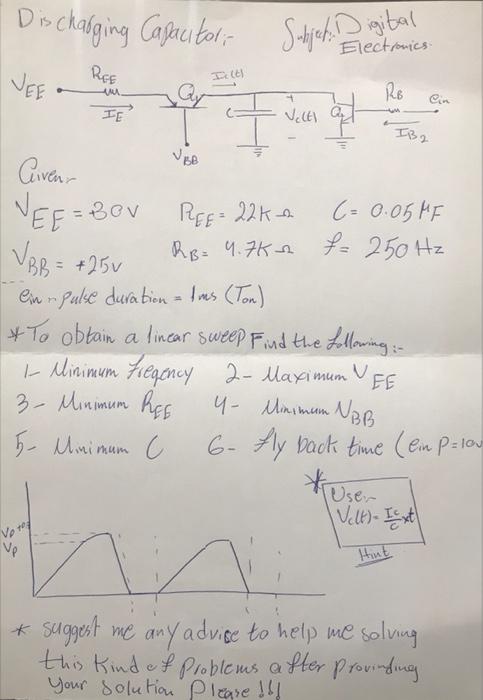 Discharging Capacitor:- Subject: Digital
Electronics.
VEE REE IE Q1 Ic(t) C Vc(t) Q2 RB ein
IB2
VBB
Given:-
VEE = 30V REE = 22K Ω C = 0.05 MF
VBB = +25V RB = 4.7K Ω f = 250 Hz
ein - pulse duration = 1ms (Ton)
* To obtain a linear sweep Find the following:-
1- Minimum freqency 2- Maximum VEE
3- Minimum REE 4- Minimum VBB
5- Minimum C 6- fly back time (ein P=10v
* Use:-
Vc(t) = Ic/C xt
Hint
Vp
* suggest me any advice to help me solving
this kind of Problems after provinding
Your solution Please !!!